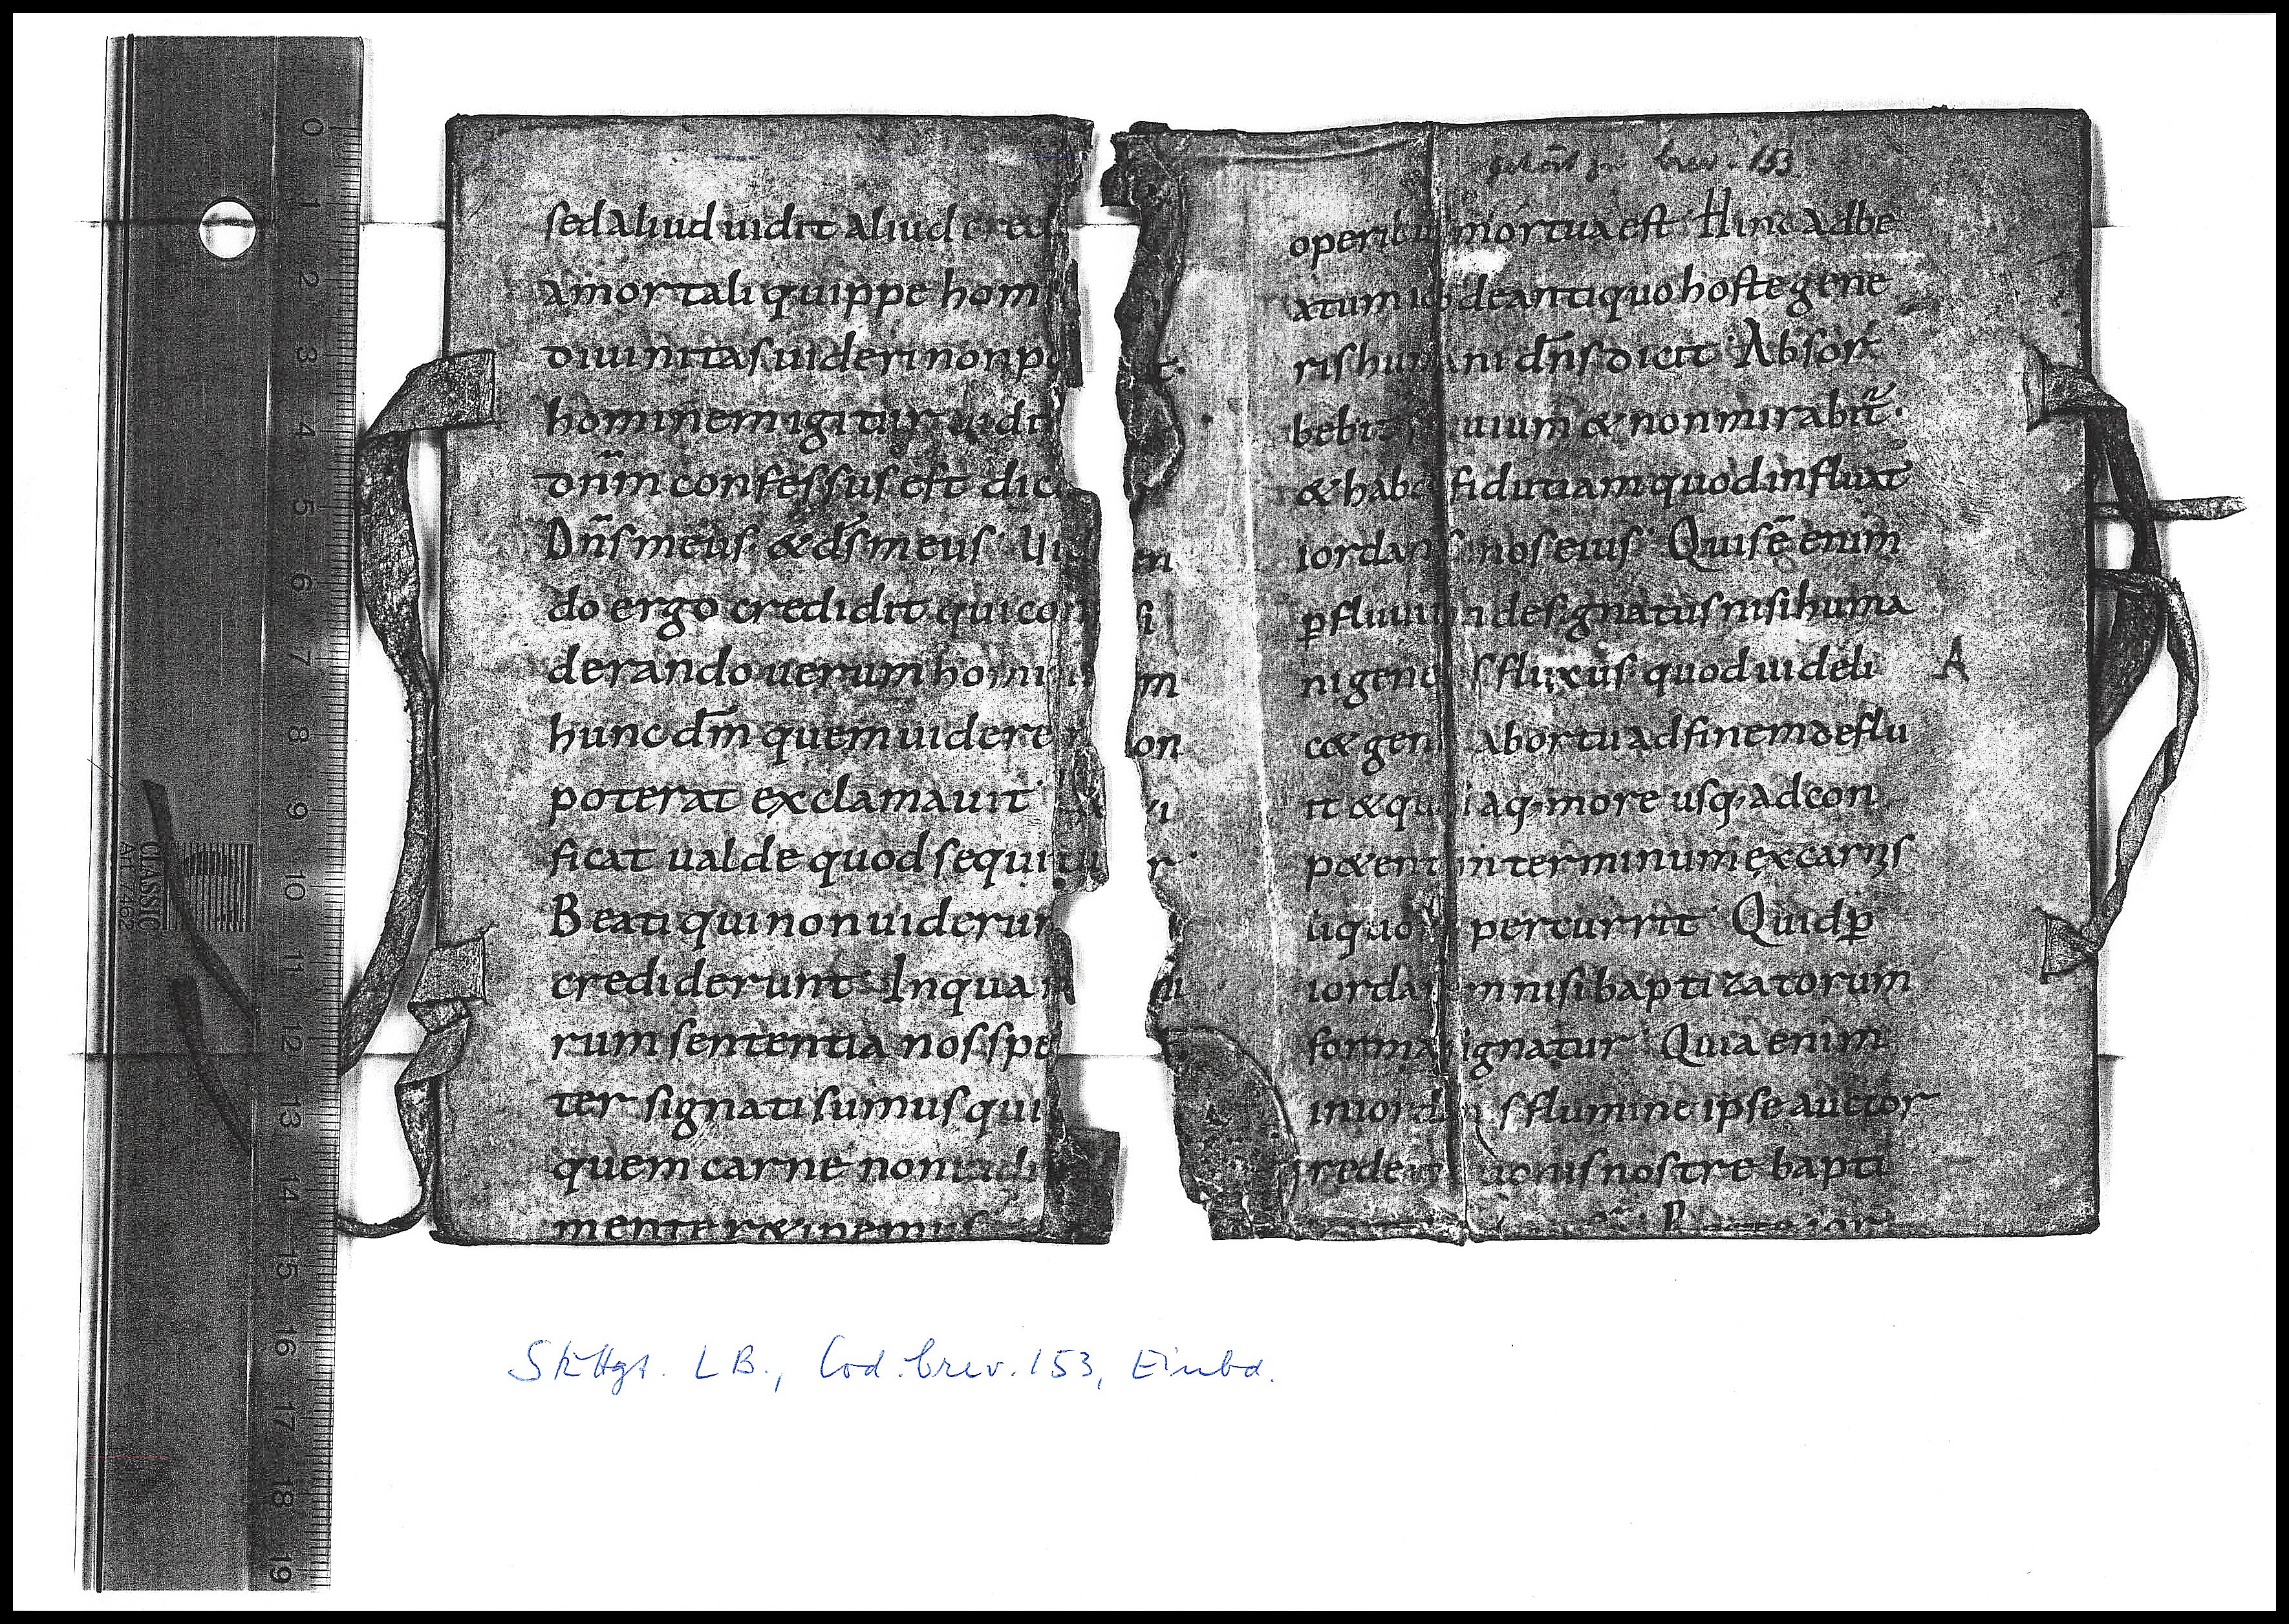 sed aliud uidit aliud cred
amortali quippe hom
diuinitas uideri non po t.
hominem igitur uidit
dn̄m confessus est dic
Dn̄s meus & ds̄ meus Ui en
do ergo credidit qui con si
derando uerum homi m
hunc dm̄ quem uidere on
poterat exclamauit
ficat ualde quod sequitu r
Beati qui non uiderun
crediderunt In qua
rum sententia nos spe
ter signati sumus qui
quem carne non uidi
mente retinemus
gehört zu brev. 153
operibu mortua est Hinc ad be
atum io de antiquo hoste gene
ris hu ani dn̄s dicit Absor
bebit uium & non mirabit̃.
& hab& fidutiam quod influat
iordan nos eius Quis ē enim
p̱ fluuiu designatus nisi huma
ni gene s fluxus quod uideli
c& gen abortu ad finem deflu
it & qu i aq; more usq; ad con
p&ent in terminum ex carnis
liquo percurrit Quid p̱
iorda m nisi baptizatorum
forma ignatur Quia enim
in iord s flumine ipse auctor
redem tionis nostre bapti
A
Stuttgt. LB., Cod. brev. 153, Einbd.
0
1
2
3
4
5
6
7
8
9
10
11
12
13
14
15
16
17
18
19
CLASSIC